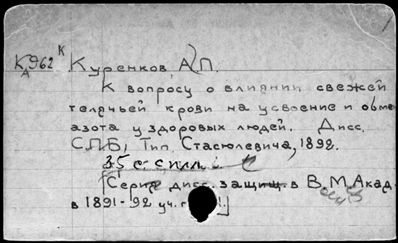 К
К 962 Куренков, А. П.
А
К вопросу о влиянии свежей
телячьей крови на усвоение и обмен
азота у здоровых людей. Дисс.
С.П.Б, Тип. Стасюлевича, 1892.
35 с.
[Серия дисс. защищ. в В. М. Акад.
в 1891-92 уч. г.]